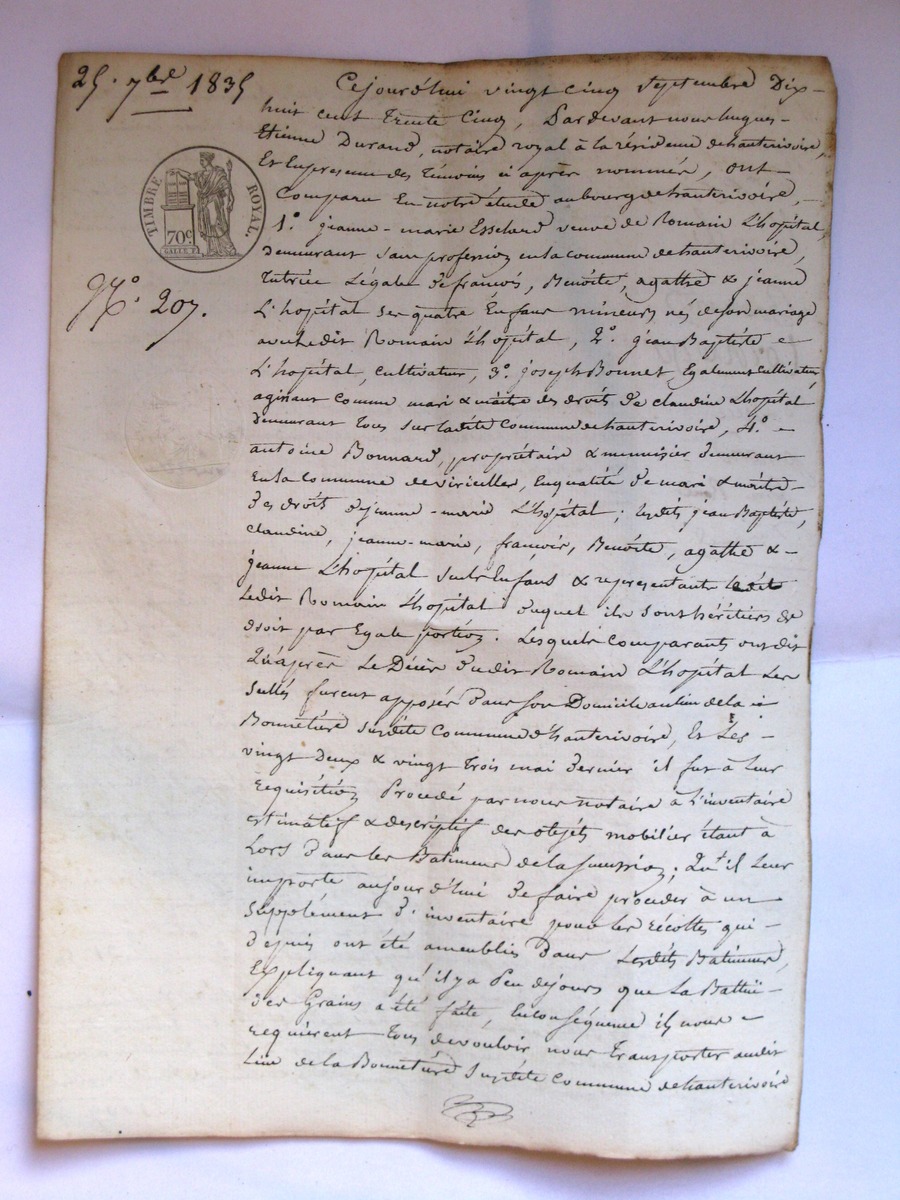 25. 7bre 1835
Cejourd'hui vingt cinq Septembre Dix-
huit cent Trente Cinq, Pardevant nous hugues-
Etienne Durand, notaire royal à la résidence de hauterivoire,
Et Enpresence des Témoins ci après nommés, ont-
Comparu En notre étude au bourg de hauterivoire, -
TIMBRE ROYAL.
70c
1.° jeanne-marie Esselard veuve de Romain L'hopital,
demeurant sans profession en la commune de hauterivoire,
Tutrice Légale de francois, Benoîte, agathe & jeanne
N.° 207.
L'hopital ses quatre Enfans mineurs nés de son mariage
avec ledit Romain L'hopital, 2.° jean Baptiste
L'hopital, cultivateur, 3.° joseph Bonnet, Egalement cultivateur
agissant Comme mari & maitre des droits de claudine L'hopital
demeurant Tous sur ladite Commune de hauterivoire, 4.°
antoine Bonnard, propriétaire & menuisier demeurant
En la Commune de viricelles, En qualité de mari & maitre-
des droits de jeanne-marie L'hopital; lesdits jean Baptiste,
claudine, jeanne-marie, francois, Benoîte, agathe & -
jeanne L'hopital seuls Enfans & representants
Ledit Romain L'hopital duquel ils sont héritiers de
droit par Egale portion. Lesquels comparants ont dit
Qu'après Le Décès dudit Romain L'hopital Les
scellés furent apposés Dans son Domicile au lieu de la
Bonneture susdite Commune d'hauterivoire, Et Les -
vingt Deux & vingt Trois mai dernier il fut à Leur
requisition Procédé par nous notaire à L'inventaire
estimatif & descriptif des objets mobilier étant à
Lors Dans les Batimens de la succession; Qu'il Leur
importe aujourd'hui De faire procéder à un
Supplément D'inventaire pour les récoltes qui -
Depuis ont été ameublis Dans Lesdits Batimens,
Expliquant qu'il y a Peu de jours que La Battue -
des Grains a été faite, En conséquence ils nous
requierent Tous de vouloir nous Transporter audit
Lieu de la Bonneture Susdite Commune de hauterivoire